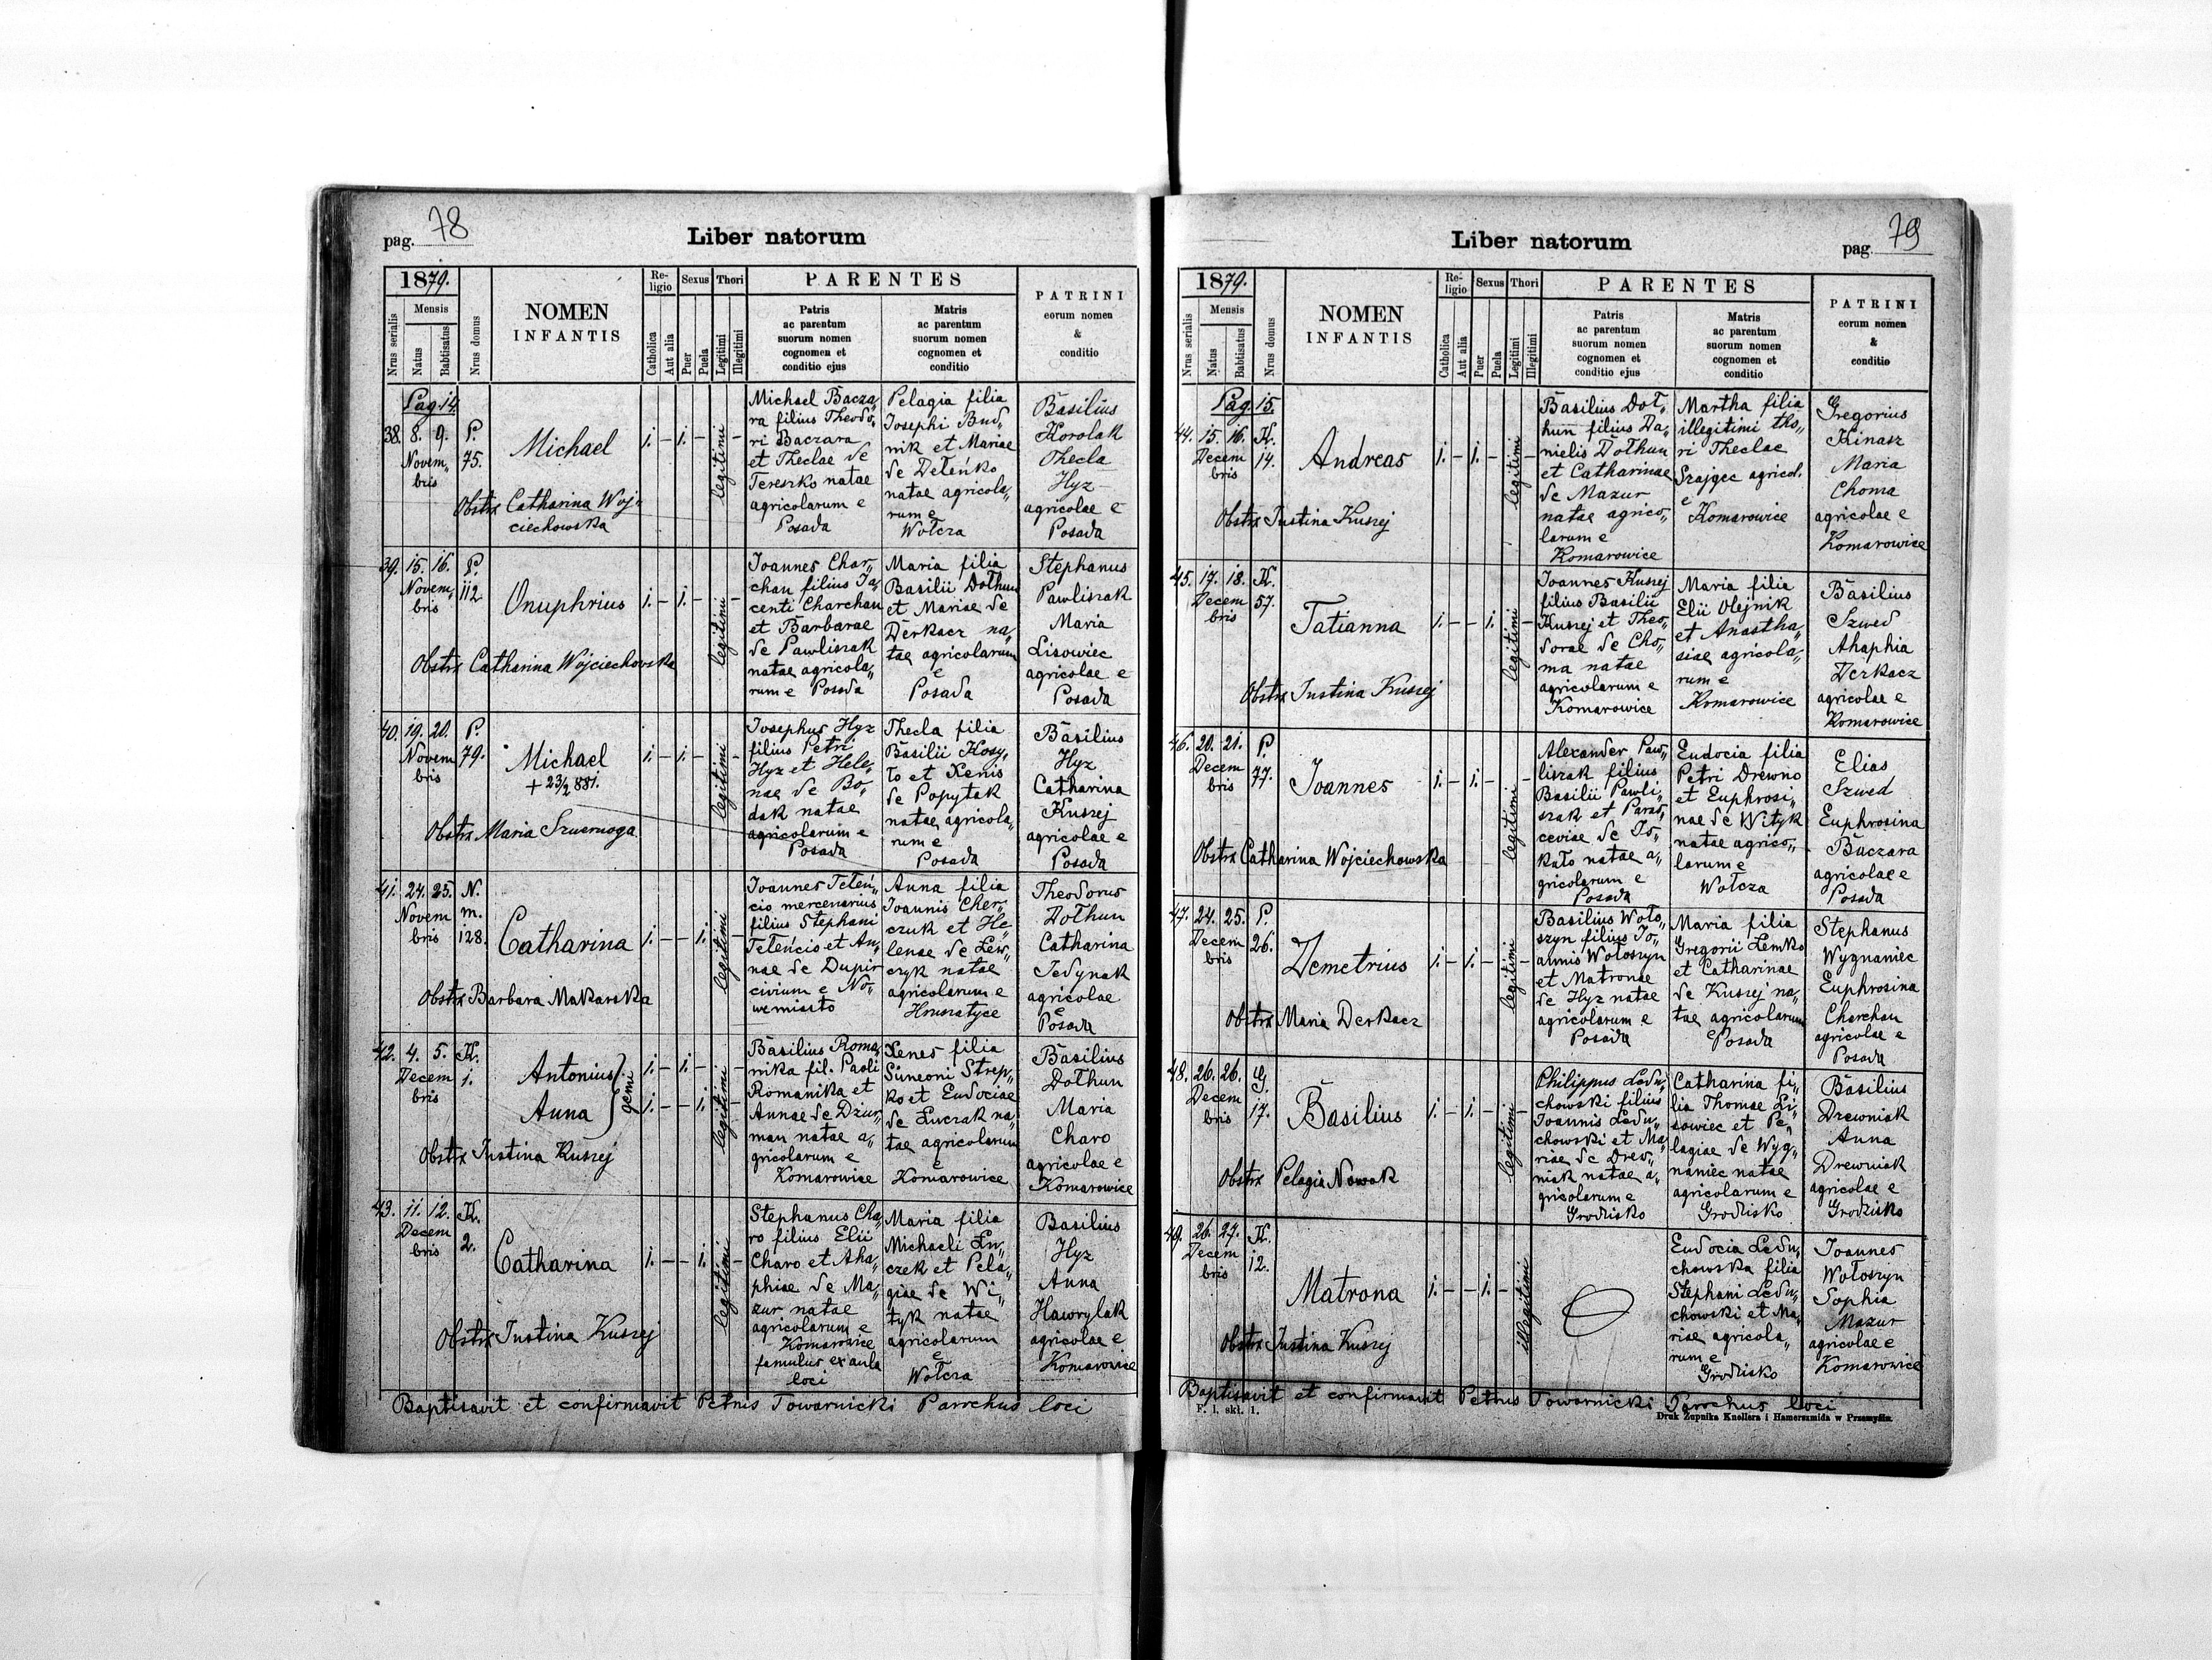 pag. 78
Liber natorum
1879.
Nrus serialis
Mensis
Natus
Babtisatus
Nrus domus
NOMEN
INFANTIS
Re-
ligio
Catholica
Aut alia
Sexus
Puer
Puela
Thori
Legitimi
Illegitimi
PARENTES
Patris
ac parentum
suorum nomen
cognomen et
conditio ejus
Matris
ac parentum
suorum nomen
cognomen et
conditio
PATRINI
eorum nomen
&
conditio
Pag. 14
38. 8. 9. P.
Novem„ 75.
bris
Michael
1. – 1. –
legitimi
Obstx Catharina Woj„
ciechowska
Michael Bacza„
ra filius Theodo„
ri Baczara
et Theclae de
Tereszko natae
agricolarum e
Posada
Pelagia filia
Josephi Bud„
nik et Mariae
de Deteńko
natae agricola„
rum e
Wołcza
Basilius
Korolak
Thecla
Hyz
agricolae e
Posada
39. 15. 16. P.
Novem„ 112
bris
Onuphrius
1. – 1. –
legitimi
Obstx Catharina Wojciechowska
Joannes Char„
chan filius Ja„
centi Charchan
et Barbarae
de Pawliszak
natae agricola„
rum e Posada
Maria filia
Basilii Dołhun
et Mariae de
Derkacz na„
tae agricolarum
e
Posada
Stephanus
Pawliszak
Maria
Lisowiec
agricolae e
Posada
40. 19. 20. P.
Novem 79.
bris
Michael
+ 23/2 881.
1. – 1. –
legitimi
Obstx Maria Szwarnoga
Josephus Hyz
filius Petri
Hyz et Hele„
nae de Bo„
dak natae
agricolarum e
Posada
Thecla filia
Basilii Kosy„
ło et Xenis
de Popytak
natae agricola„
rum e
Posada
Basilius
Hyz
Catharina
Kuszej
agricolae e
Posada
41. 24. 25. N.
Novem m.
bris 128.
Catharina
1. – – 1. –
legitimi
Obstx Barbara Makarska
Joannes Teteń„
cio mercenarius
filius Stephani
Teteńcio et An„
nae de Dupir
civium e No„
wemiasto
Anna filia
Joannis Cher„
czuk et He„
lenae de Lew„
czyk natae
agricolarum e
Hruszatyce
Theodorus
Dołhun
Catharina
Jedynak
agricolae
e
Posada
42. 4. 5. K.
Decem 1.
bris
Antonius
Anna
gem.
1. – 1. –
1. – – 1. –
legitimi
Obstx Justina Kuszej
Basilius Roma„
nika fil. Pauli
Romanika et
Annae de Dziur„
man natae a„
gricolarum e
Komarowice
Xenes filia
Simeoni Strep„
ko et Eudociae
de Luczak na„
tae agricolarum
e
Komarowice
Basilius
Dołhun
Maria
Charo
agricolae e
Komarowice
43. 11. 12. K.
Decem 2.
bris
Catharina
1. – – 1. –
legitimi
Obstx Justina Kuszej
Stephanus Cha„
ro filius Elii
Charo et Aha„
phiae de Ma„
zur natae
agricolarum e
Komarowice
famulus ex aula
loci
Maria filia
Michaeli Lu„
czek et Pela„
giae de Wi„
tyk natae
agricolarum
e
Wołcza
Basilius
Hyz
Anna
Hawrylak
agricolae e
Komarowice
Baptisavit et confirmavit Petrus Towarnicki Parochus loci
Liber natorum
pag. 79
1879.
Nrus serialis
Mensis
Natus
Babtisatus
Nrus domus
NOMEN
INFANTIS
Re-
ligio
Catholica
Aut alia
Sexus
Puer
Puela
Thori
Legitimi
Illegitimi
PARENTES
Patris
ac parentum
suorum nomen
cognomen et
conditio ejus
Matris
ac parentum
suorum nomen
cognomen et
conditio
PATRINI
eorum nomen
&
conditio
Pag. 15.
44. 15. 16. K.
Decem 14.
bris
Andreas
1. – 1. –
legitimi
Obstx Justina Kuszej
Basilius Doł„
hun filius Da„
nielis Dołhun
et Catharinae
de Mazur
natae agrico„
larum e
Komarowice
Martha filia
illegitimi tho„
ri Theclae
Szajgec agricol.
e
Komarowice
Gregorius
Kinasz
Maria
Choma
agricolae e
Komarowice
45. 17. 18. K.
Decem 57.
bris
Tatianna
1. – – 1. –
legitimi
Obstx Justina Kuszej
Joannes Kuszej
filius Basilii
Kuszej et Theo„
dorae de Cho„
ma natae
agricolarum e
Komarowice
Maria filia
Elii Olejnik
et Anastha„
siae agricola„
rum e
Komarowice
Basilius
Szwed
Ahaphia
Derkacz
agricolae e
Komarowice
46. 20. 21. P.
Decem 77.
bris
Joannes
1. – 1. –
legitimi
Obstx Catharina Wojciechowska
Alexander Paw„
liszak filius
Basilii Pawli„
szak et Paras„
ceviae de Jo„
kało natae a„
gricolarum e
Posada
Eudocia filia
Petri Drewno
et Euphrosi„
nae de Wityk
natae agrico„
larum e
Wołcza
Elias
Szwed
Euphrosina
Baczara
agricolae e
Posada
47. 24. 25. P.
Decem 26.
bris
Demetrius
1. – 1. –
legitimi
Obstx Maria Derkacz
Basilius Woło„
szyn filius Jo„
annis Wołoszyn
et Matronae
de Hyz natae
agricolarum e
Posada
Maria filia
Gregorii Lemko
et Catharinae
de Kuszej na„
tae agricolarum
e Posada
Stephanus
Wygnaniec
Euphrosina
Charchan
agricolae e
Posada
48. 26. 26. G.
Decem 17.
bris
Basilius
1. – 1. –
legitimi
Obstx Pelagia Nowak
Philippus Ledu„
chowski filius
Joannis Ledu„
chowski et Ma„
riae de Drew„
niak natae a„
gricolarum e
Grodzisko
Catharina fi„
lia Thomae Li„
sowiec et Pe„
lagiae de Wyg„
naniec natae
agricolarum e
Grodzisko
Basilius
Drewniak
Anna
Drewniak
agricolae e
Grodzisko
49. 26. 27. K.
Decem 12.
bris
Matrona
1. – – 1. –
illegitimi
Obstx Justina Kuszej
Eudocia Ledu„
chowska filia
Stephani Ledu„
chowski et Ma„
riae agricola„
rum e
Grodzisko
Joannes
Wołoszyn
Sophia
Mazur
agricolae e
Komarowice
Baptisavit et confirmavit Petrus Towarnicki Parochus loci
F. l. skł. 1.
Druk Żupnika Knollera i Hamerszmida w Przemyślu.